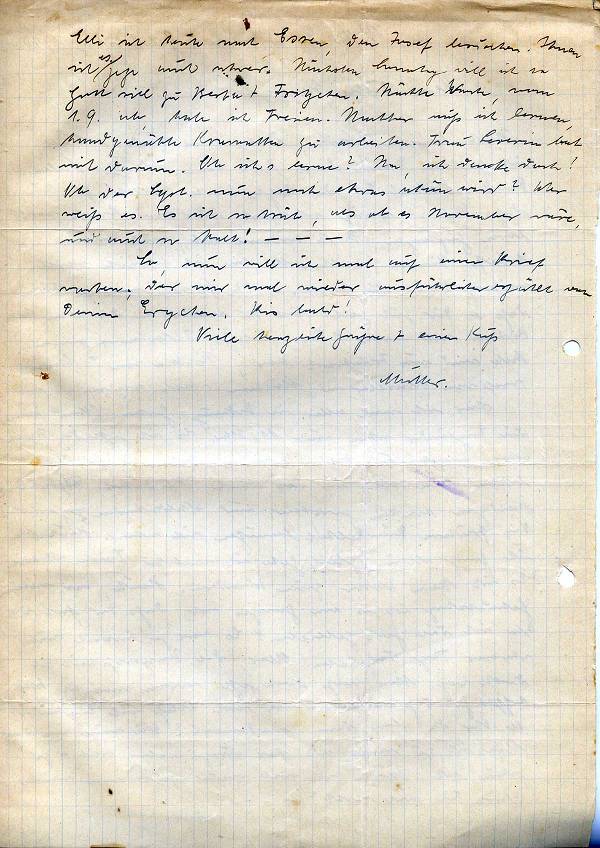 Elli ist heute nach Essen, den Josef besuchen. Ihnen
ist es jetzt auch schwer. Nächsten Sonntag will ich so
Gott will zu Berta + Fritzchen. Nächste Woche, vom
1.9. ab, habe ich Ferien. Nachher muß ich lernen,
handgenähte Krawatten zu arbeiten. Frau Severin bat
mich darum. Ob ich's lerne? Na, ich denke doch!
Ob der Sept. nun noch etwas schön wird? Wer
weiß es. Es ist so trüb, als ob es November wäre,
und auch so kalt! — — —
So, nun will ich mal auf einen Brief
warten, der mir mal wieder ausführlicher erzählt von
Deinem Ergehen. Bis bald!
Viele herzliche Grüße + einen Kuß
Mutter.